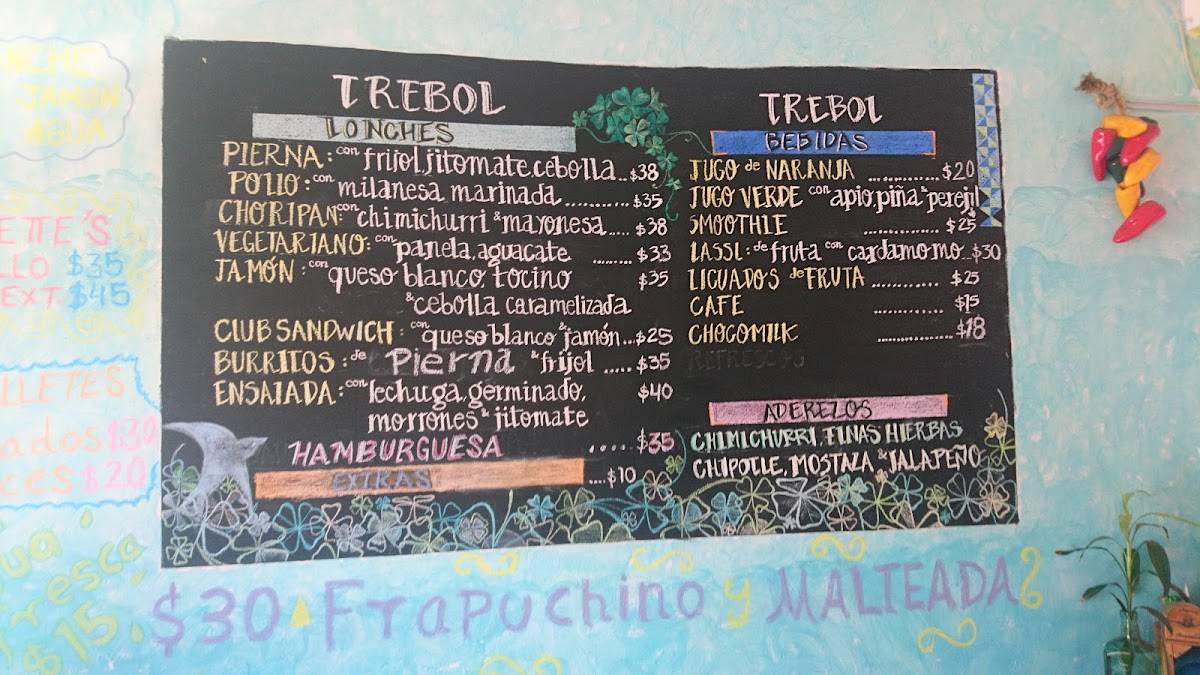 NCHE
JAMON
AGUA
ETTE'S
LLO $35
EXT $45
LLETES
ados $30
ces $20
ua
fresca
$15
TREBOL
LONCHES
PIERNA: con frijol, jitomate, cebolla... $38
POLLO: con milanesa marinada.......... $35
CHORIPAN: con chimichurri & mayonesa..... $38
VEGETARIANO: con panela, aguacate ........ $33
JAMÓN: con queso blanco, tocino $35
& cebolla caramelizada
CLUB SANDWICH: con queso blanco & jamón... $25
BURRITOS: de Pierna & frijol ..... $35
ENSALADA: con lechuga, germinado, $40
morrones & jitomate
HAMBURGUESA .... $35
EXTRAS .... $10
TREBOL
BEBIDAS
JUGO de NARANJA ............ $20
JUGO VERDE con apio, piña & perejil
SMOOTHIE ............ $25
LASSI: de fruta con cardamomo... $30
LICUADOS de FRUTA ............ $25
CAFE ............ $15
CHOCOMILK ............ $18
REFRESCOS
ADEREZOS
CHIMICHURRI, FINAS HIERBAS
CHIPOTLE, MOSTAZA & JALAPEÑO
$30 FRAPUCHINO y MALTEADA